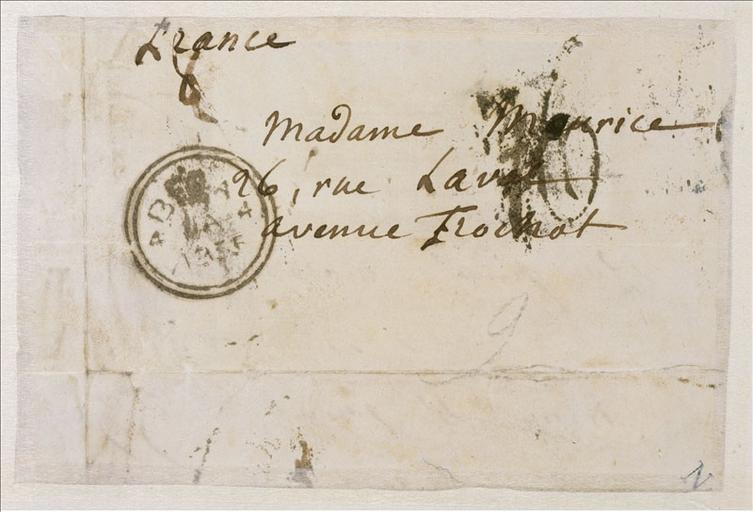 France
Madame Maurice
26, rue Laval
avenue Frochot
9